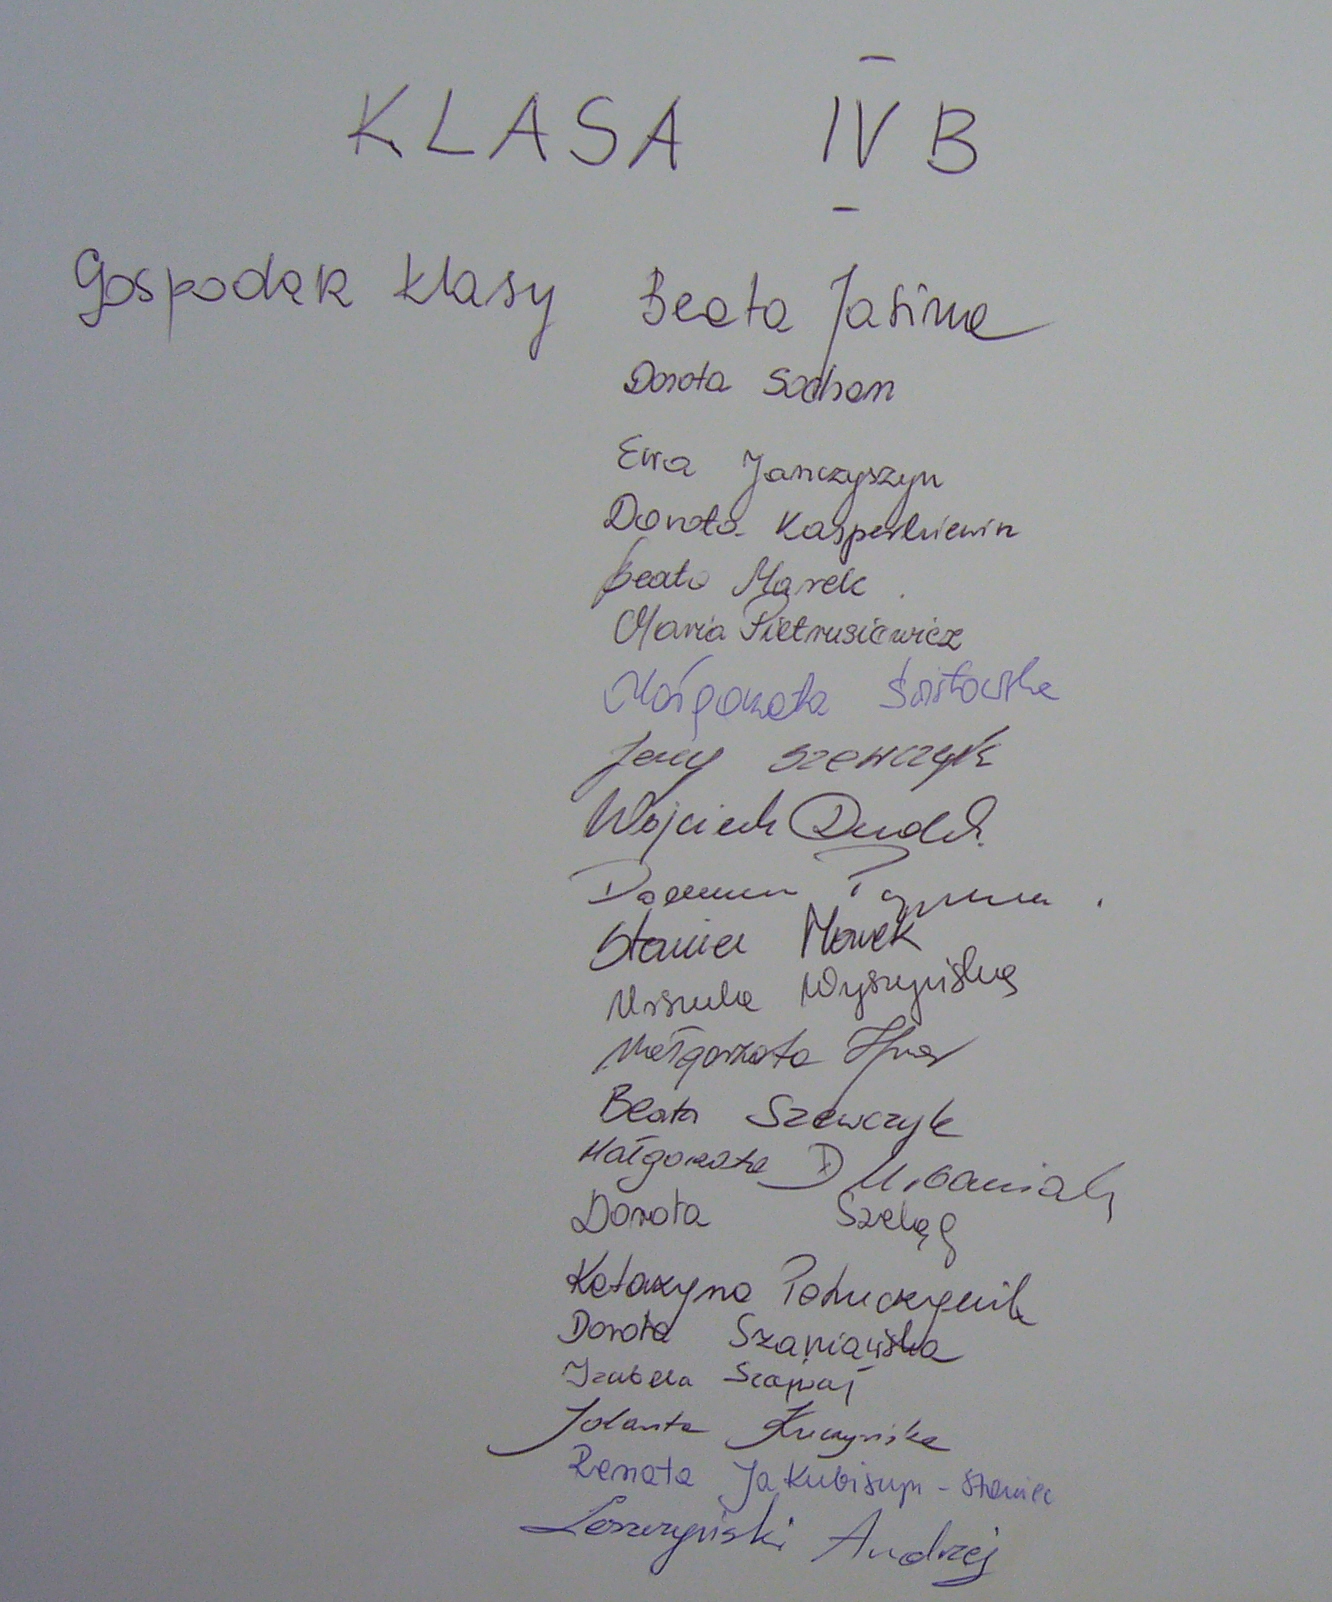 KLASA IV B
Gospodarz klasy Beata
Dorota Sochan
Ewa Janczyszyn
Dorota Kasperkiewicz
Beata Marek
Maria Pietrusiewicz
Małgorzata Świtowska
Jerzy Szewczyk
Wojciech Dudek
Staniec Marek
Urszula Wyszyńska
Małgorzata
Beata Szewczyk
Małgorzata D Urbaniak
Dorota Szeląg
Katarzyna
Dorota Szaniawska
Izabela
Jolanta Kuczyńska
Renata Jakubiszyn - Staniec
Leszczyński Andrzej